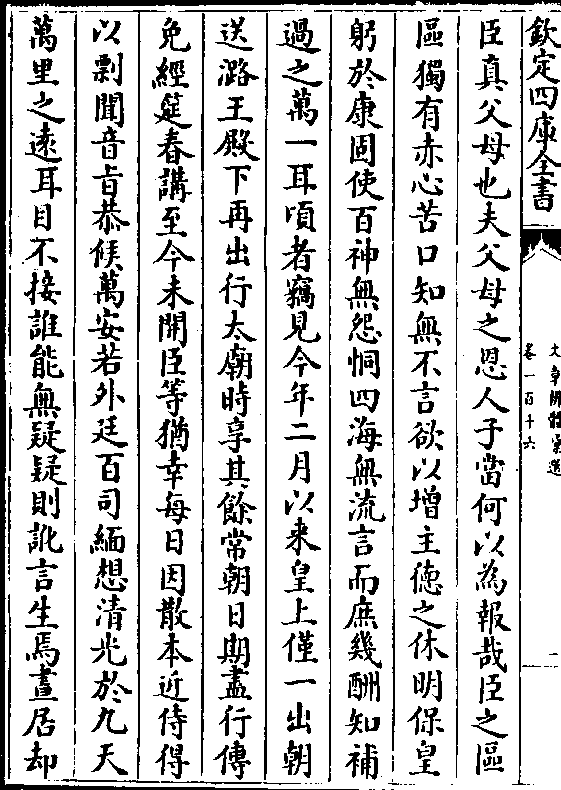 欽定四庫全書
文章辨體彙選
卷一百十六
二
臣真父母也夫父母之恩人子當何以為報哉臣之區
區獨有赤心苦口知無不言欲以增主徳之休明保皇
躬於康固使百神無怨恫四海無流言而庶幾酬知補
過之萬一耳頃者竊見今年二月以来皇上僅一出朝
送潞王殿下再出行太廟時享其餘常朝日期盡行傳
免經筵春講至今未開臣等猶幸每日因散本近侍得
以剽聞音㫖恭候萬安若外廷百司緬想清光於九天
萬里之遠耳目不接誰能無疑疑則訛言生焉晝居却